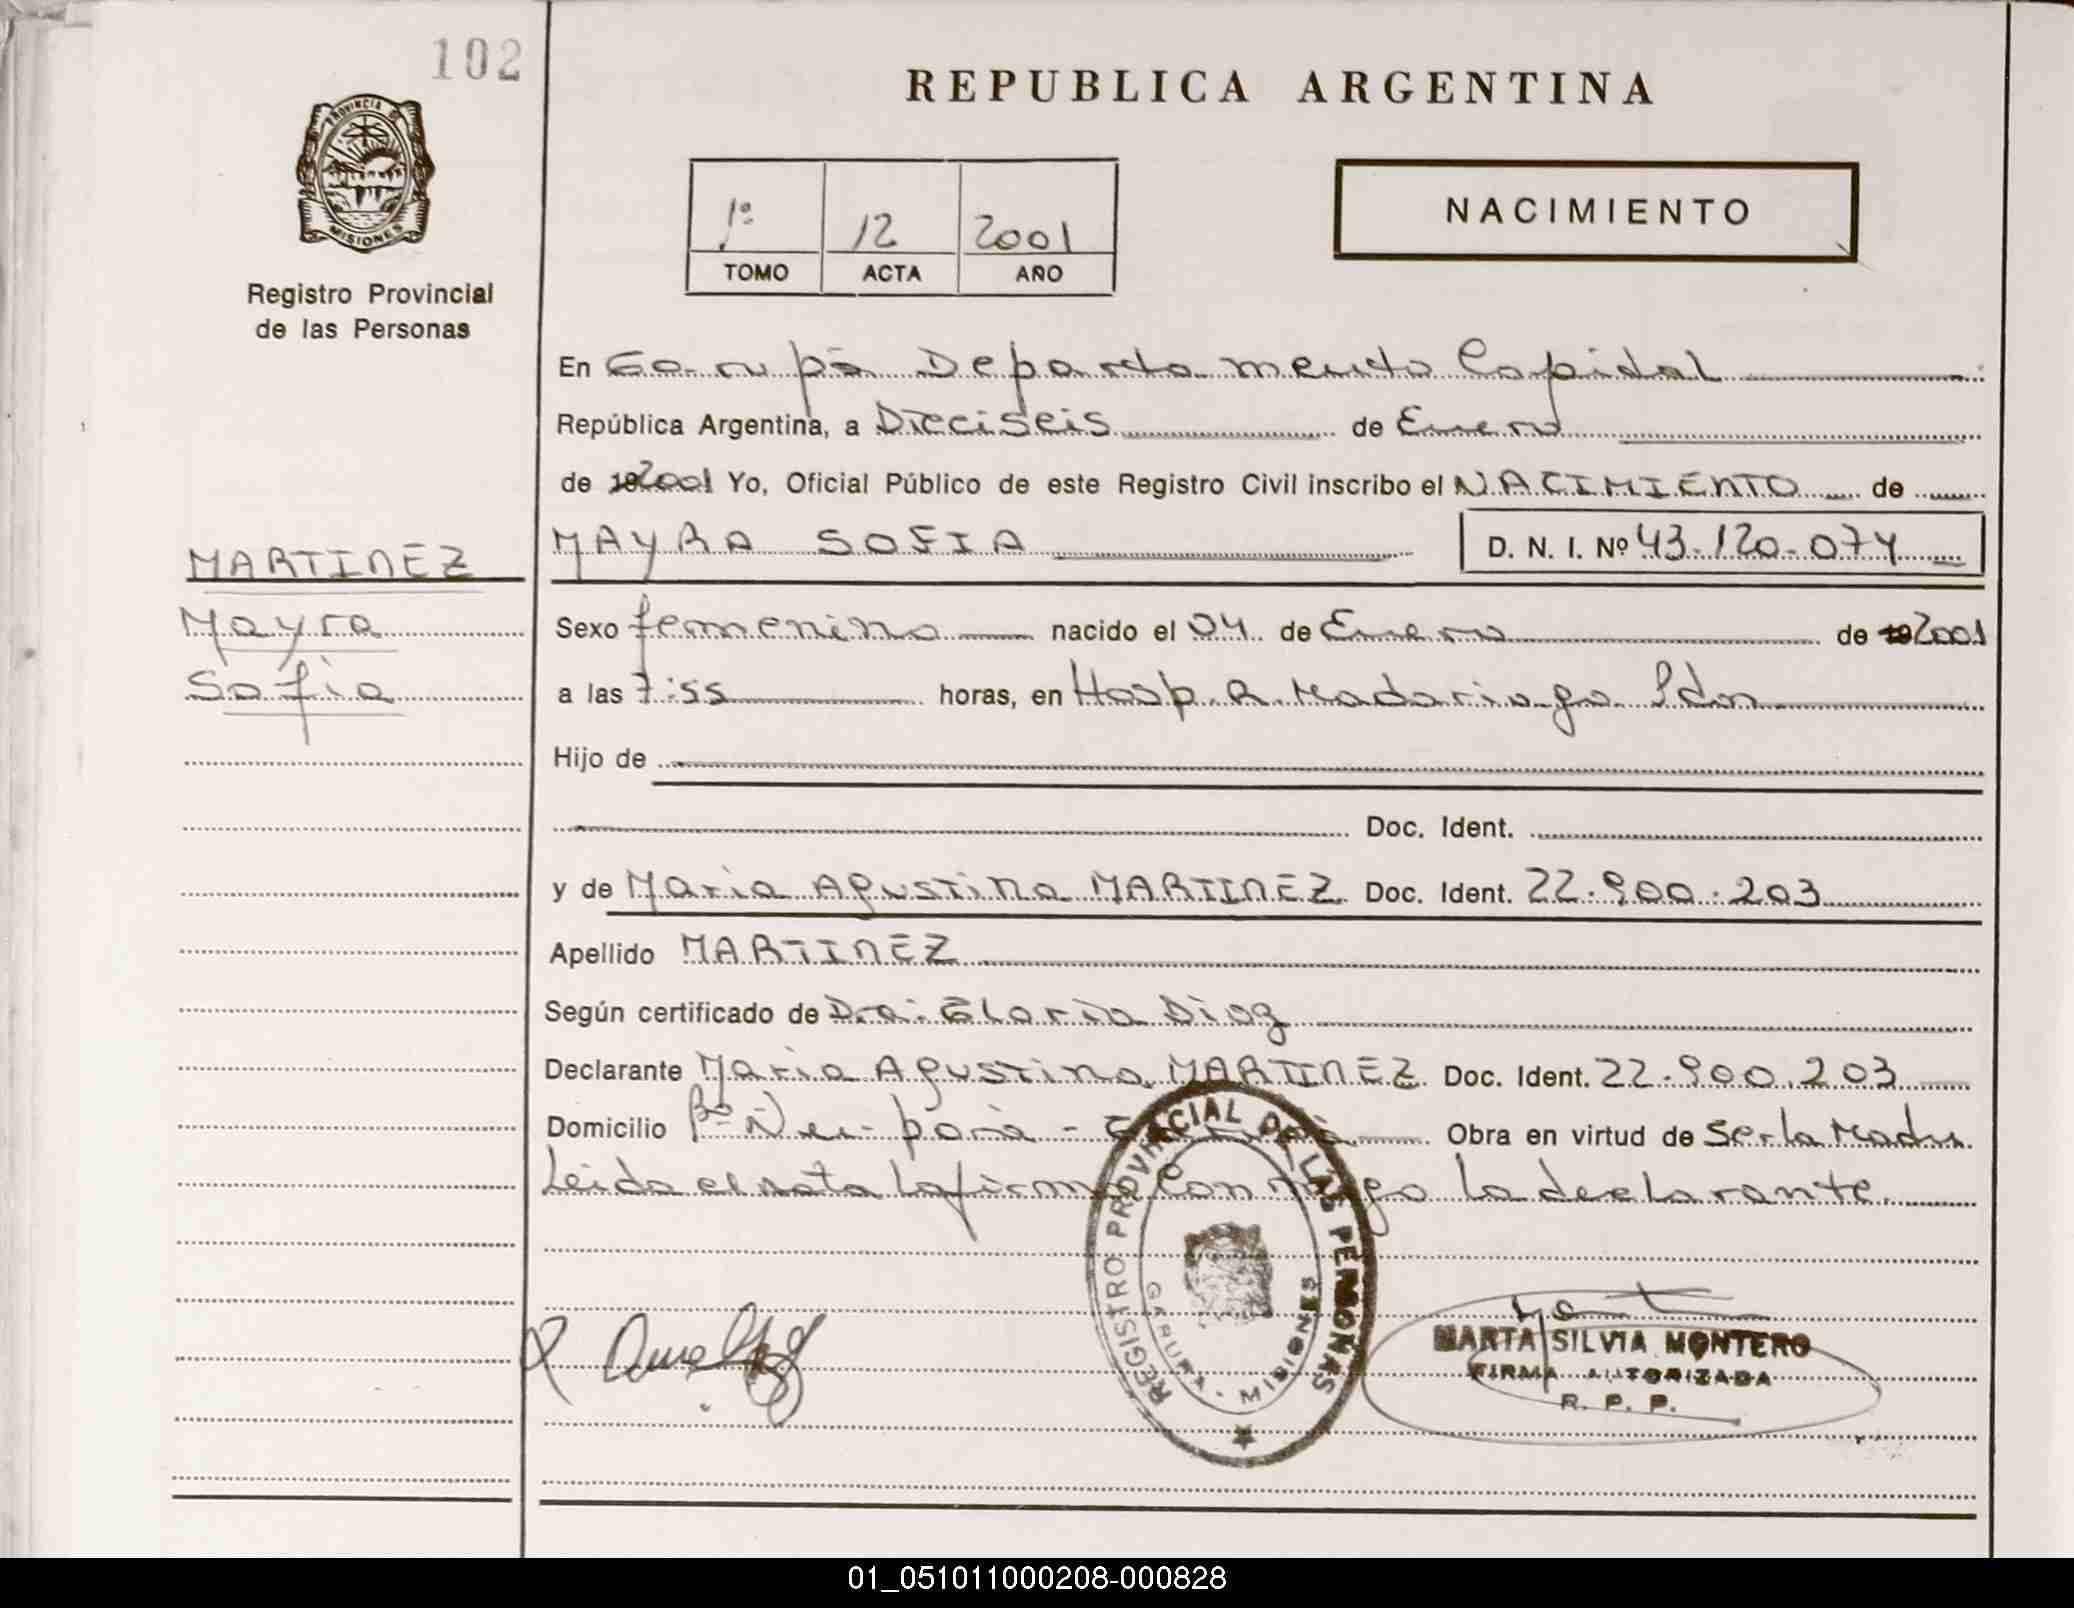 102
REPUBLICA ARGENTINA
PROVINCIA DE
MISIONES
Registro Provincial
de las Personas
1º 12 2001
TOMO ACTA AÑO
NACIMIENTO
En Garupá Departamento Capital
República Argentina, a Dieciseis de Enero
de 2001 Yo, Oficial Público de este Registro Civil inscribo el NACIMIENTO de
MARTINEZ
Mayra
Sofia
MAYRA SOFIA D. N. I. Nº 43.120.074
Sexo femenino nacido el 04 de Enero de 19 2001
a las 7:55 horas, en Hosp. R. Madariaga Pdas
Hijo de
Doc. Ident.
y de Maria Agustina MARTINEZ Doc. Ident. 22.900.203
Apellido MARTINEZ
Según certificado de Dra. Gloria Diaz
Declarante Maria Agustina MARTINEZ Doc. Ident. 22.900.203
Domicilio Bº Ñu porá - Garupá Obra en virtud de Ser la Madre
Leida el acta la firma conmigo la declarante.
REGISTRO PROVINCIAL DE LAS PERSONAS
GARUPA - MISIONES
MARTA SILVIA MONTERO
FIRMA AUTORIZADA
R. P. P.
01_051011000208-000828